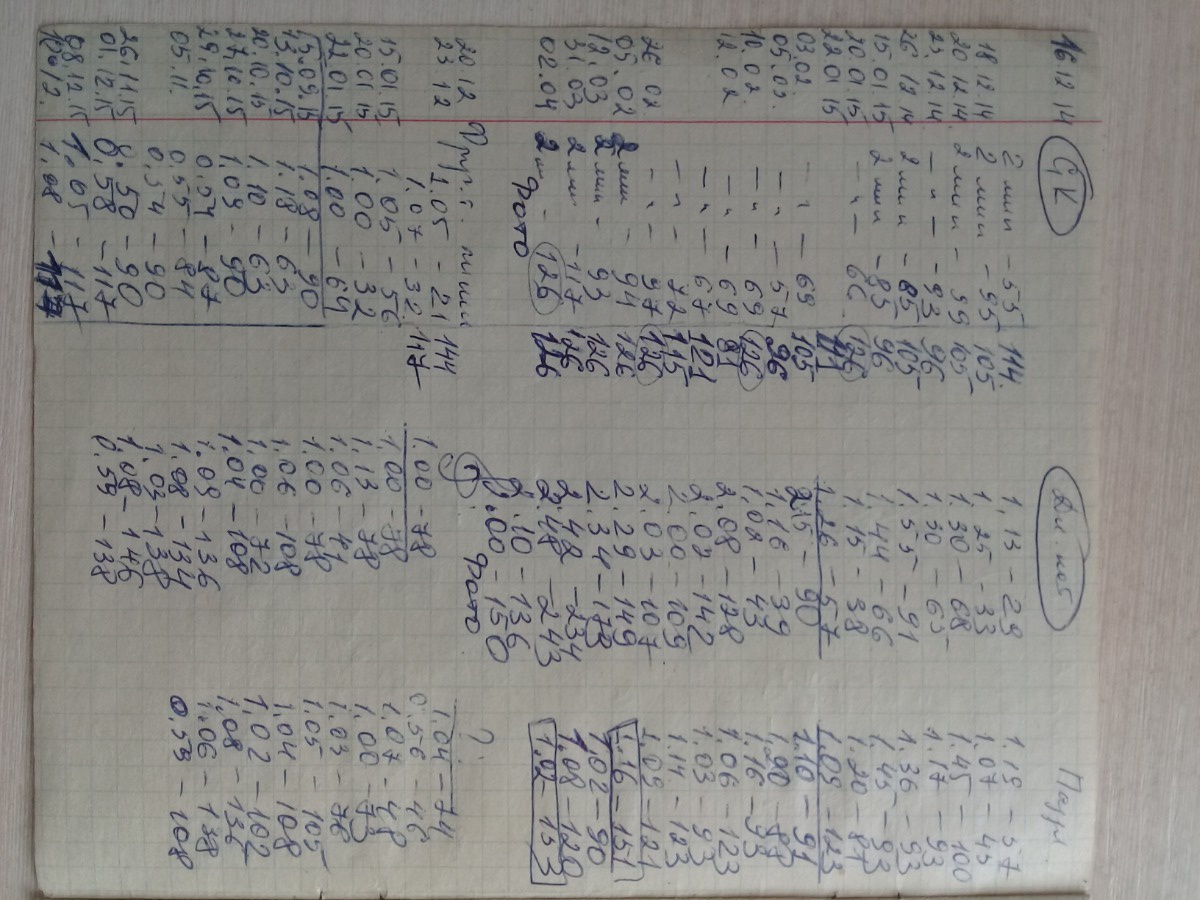 16 12 14 СК Дв. моб Паузы
2 мин - 55 114 1,13 - 29 1,19 - 57
18 12 14 2 мин - 95 105 1,25 - 33 1,07 - 45
20 12 14 2 мин - 99 105 1,30 - 68 1,45 - 100
23 12 14 - " - - 93 96 1,30 - 63 1,17 - 93
26 12 14 2 мин - 85 105 1,55 - 91 1,36 - 93
15 01 15 2 мин - 85 96 1,44 - 66 1,43 - 93
20 01 15 - " - 66 126 1,15 - 38 1,20 - 81
22 01 15 1,26 - 57 1,09 - 123
03.02 - " - 69 105 2,15 - 90 1,10 - 91
05.02 - " - 57 96 1,16 - 39 1,90 - 87
10.02 - " - 69 126 1,08 - 43 1,16 - 93
12.02 - " - 69 81 2,08 - 128 1,06 - 123
- " - 67 121 2,02 - 142 1,03 - 93
- " - 72 115 2,00 - 109 1,14 - 123
26.02 - " - 97 126 2,03 - 107 1,09 - 121
05.02 2 мин - 94 126 2,29 - 149 1,16 - 151
12.03 2 мин - 93 126 2,34 - 178 1,02 - 90
31.03 2 мин - 117 126 2,42 - 234 1,08 - 120
02.04 2 мин - 126 126 2,48 - 243 1,02 - 153
фото 2,10 - 136
2,00 - 150
фото
20 12 1,05 - 21 144 ?
23 12 1,07 - 32 147 1,00 - 78 1,04 - 74
15.01.15 1,05 - 56 1,00 - 78 0,56 - 46
20 01 15 1,00 - 32 1,13 - 78 1,07 - 48
22 01 15 1,00 - 64 1,06 - 71 1,00 - 73
15.09.15 1,08 - 90 1,00 - 78 1,03 - 78
13.10.15 1,18 - 63 1,06 - 108 1,05 - 105
20.10.15 1,10 - 63 1,00 - 72 1,04 - 108
27.10.15 1,09 - 90 1,04 - 108 1,02 - 102
29.10.15 0,57 - 87 1,09 - 136 1,08 - 136
05.11. 0,55 - 84 1,08 - 134 1,06 - 138
0,54 - 90 1,03 - 138 0,53 - 108
26.11.15 0,50 - 90 1,08 - 146
01.12.15 0,58 - 117 0,59 - 138
08.12.15 1,05 - 117
1,08 - 117